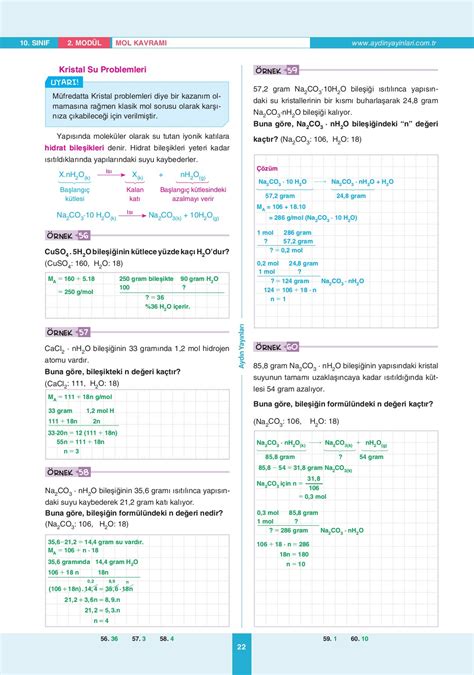 10. SINIF
2. MODÜL
MOL KAVRAMI
www.aydinyayinlari.com.tr
Kristal Su Problemleri
UYARI!
Müfredatta Kristal problemleri diye bir kazanım ol-
mamasına rağmen klasik mol sorusu olarak karşı-
nıza çıkabileceği için verilmiştir.
Yapısında moleküler olarak su tutan iyonik katılara
hidrat bileşikleri denir. Hidrat bileşikleri yeteri kadar
ısıtıldıklarında yapılarındaki suyu kaybederler.
X.nH2O(k) Isı → X(k) + nH2O(g)
Başlangıç Kalan Başlangıç kütlesindeki
kütlesi katı azalmayı verir
Na2CO3·10 H2O(k) Isı → Na2CO3(k) + 10H2O(g)
ÖRNEK - 56
CuSO4 . 5H2O bileşiğinin kütlece yüzde kaçı H2O'dur?
(CuSO4: 160, H2O: 18)
MA = 160 + 5.18 250 gram bileşikte 90 gram H2O
= 250 g/mol 100 ?
? = 36
%36 H2O içerir.
ÖRNEK - 57
CaCl2 · nH2O bileşiğinin 33 gramında 1,2 mol hidrojen
atomu vardır.
Buna göre, bileşikteki n değeri kaçtır?
(CaCl2: 111, H2O: 18)
MA = 111 + 18n g/mol
33 gram 1,2 mol H
111 + 18n 2n
33·2n = 12 (111 + 18n)
55n = 111 + 18n
n = 3
ÖRNEK - 58
Na2CO3 · nH2O bileşiğinin 35,6 gramı ısıtılınca yapısın-
daki suyu kaybederek 21,2 gram katı kalıyor.
Buna göre, bileşiğin formülündeki n değeri nedir?
(Na2CO3: 106, H2O: 18)
35,6 - 21,2 = 14,4 gram su vardır.
MA = 106 + n · 18
35,6 gramında 14,4 gram H2O
106 + 18 n 18n
0,2 0,8 n
(106 + 18n) · 14,4 = 38,8 · 18n
21,2 + 3,6n = 8,9n
21,2 = 5,3n
n = 4
Aydın Yayınları
ÖRNEK - 59
57,2 gram Na2CO3·10H2O bileşiği ısıtılınca yapısın-
daki su kristallerinin bir kısmı buharlaşarak 24,8 gram
Na2CO3 · nH2O bileşiği kalıyor.
Buna göre, Na2CO3 · nH2O bileşiğindeki “n” değeri
kaçtır? (Na2CO3: 106, H2O: 18)
Çözüm
Na2CO3 · 10 H2O → Na2CO3 · nH2O + H2O
57,2 gram 24,8 gram
MA = 106 + 18.10
= 286 g/mol (Na2CO3 · 10H2O)
1 mol 286 gram
? 57,2 gram
? = 0,2 mol
0,2 mol 24,8 gram
1 mol ?
? = 124 gram Na2CO3 · nH2O
124 = 106 + 18 · n
n = 1
ÖRNEK - 60
85,8 gram Na2CO3 · nH2O bileşiğinin yapısındaki kristal
suyunun tamamı uzaklaşıncaya kadar ısıtıldığında küt-
lesi 54 gram azalıyor.
Buna göre, bileşiğin formülündeki n değeri kaçtır?
(Na2CO3: 106, H2O: 18)
Na2CO3 · nH2O(k) → Na2CO3(k) + nH2O(g)
85,8 gram ? 54 gram
85,8 - 54 = 31,8 gram Na2CO3(k)
Na2CO3 için n = 31,8 / 106
= 0,3 mol
0,3 mol 85,8 gram
1 mol ?
? = 286 gram Na2CO3 · nH2O
106 + 18 · n = 286
18n = 180
n = 10
56. 36 57. 3 58. 4
22
59. 1 60. 10